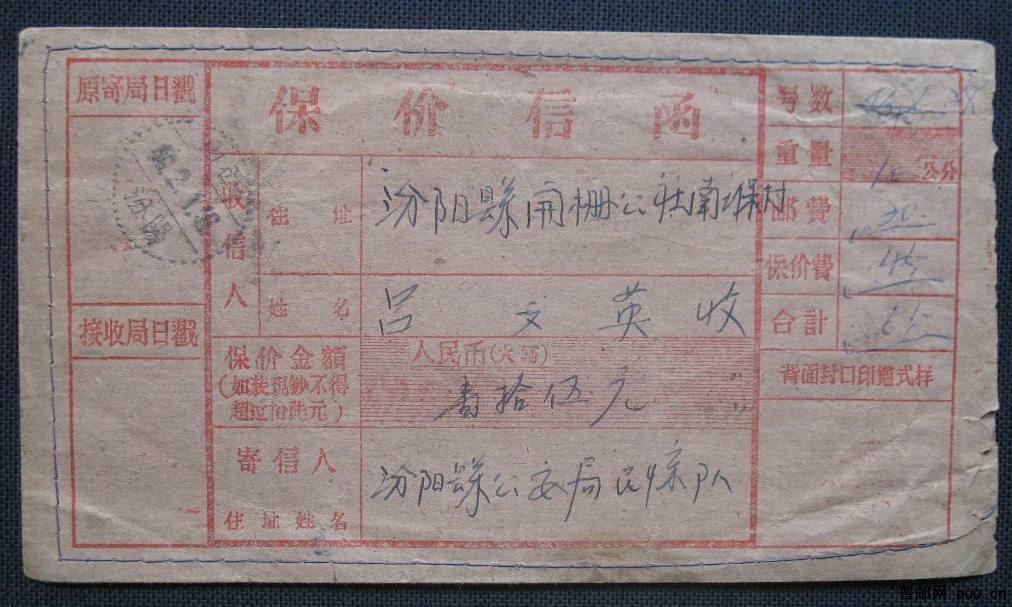 原寄局日戳
保价信函
号数
重量
10 公分
邮费
20
保价费
45
合計
65
收信人
住址
汾阳縣 公社南 村
姓名
吕文英收
接收局日戳
保价金額
(如装現鈔不得
超过拾陆元)
人民币(大写)
壹拾伍元
背面封口印鑑式样
寄信人
汾阳縣公安局 队
住址姓名
汾陽
普邮网 puu.cn